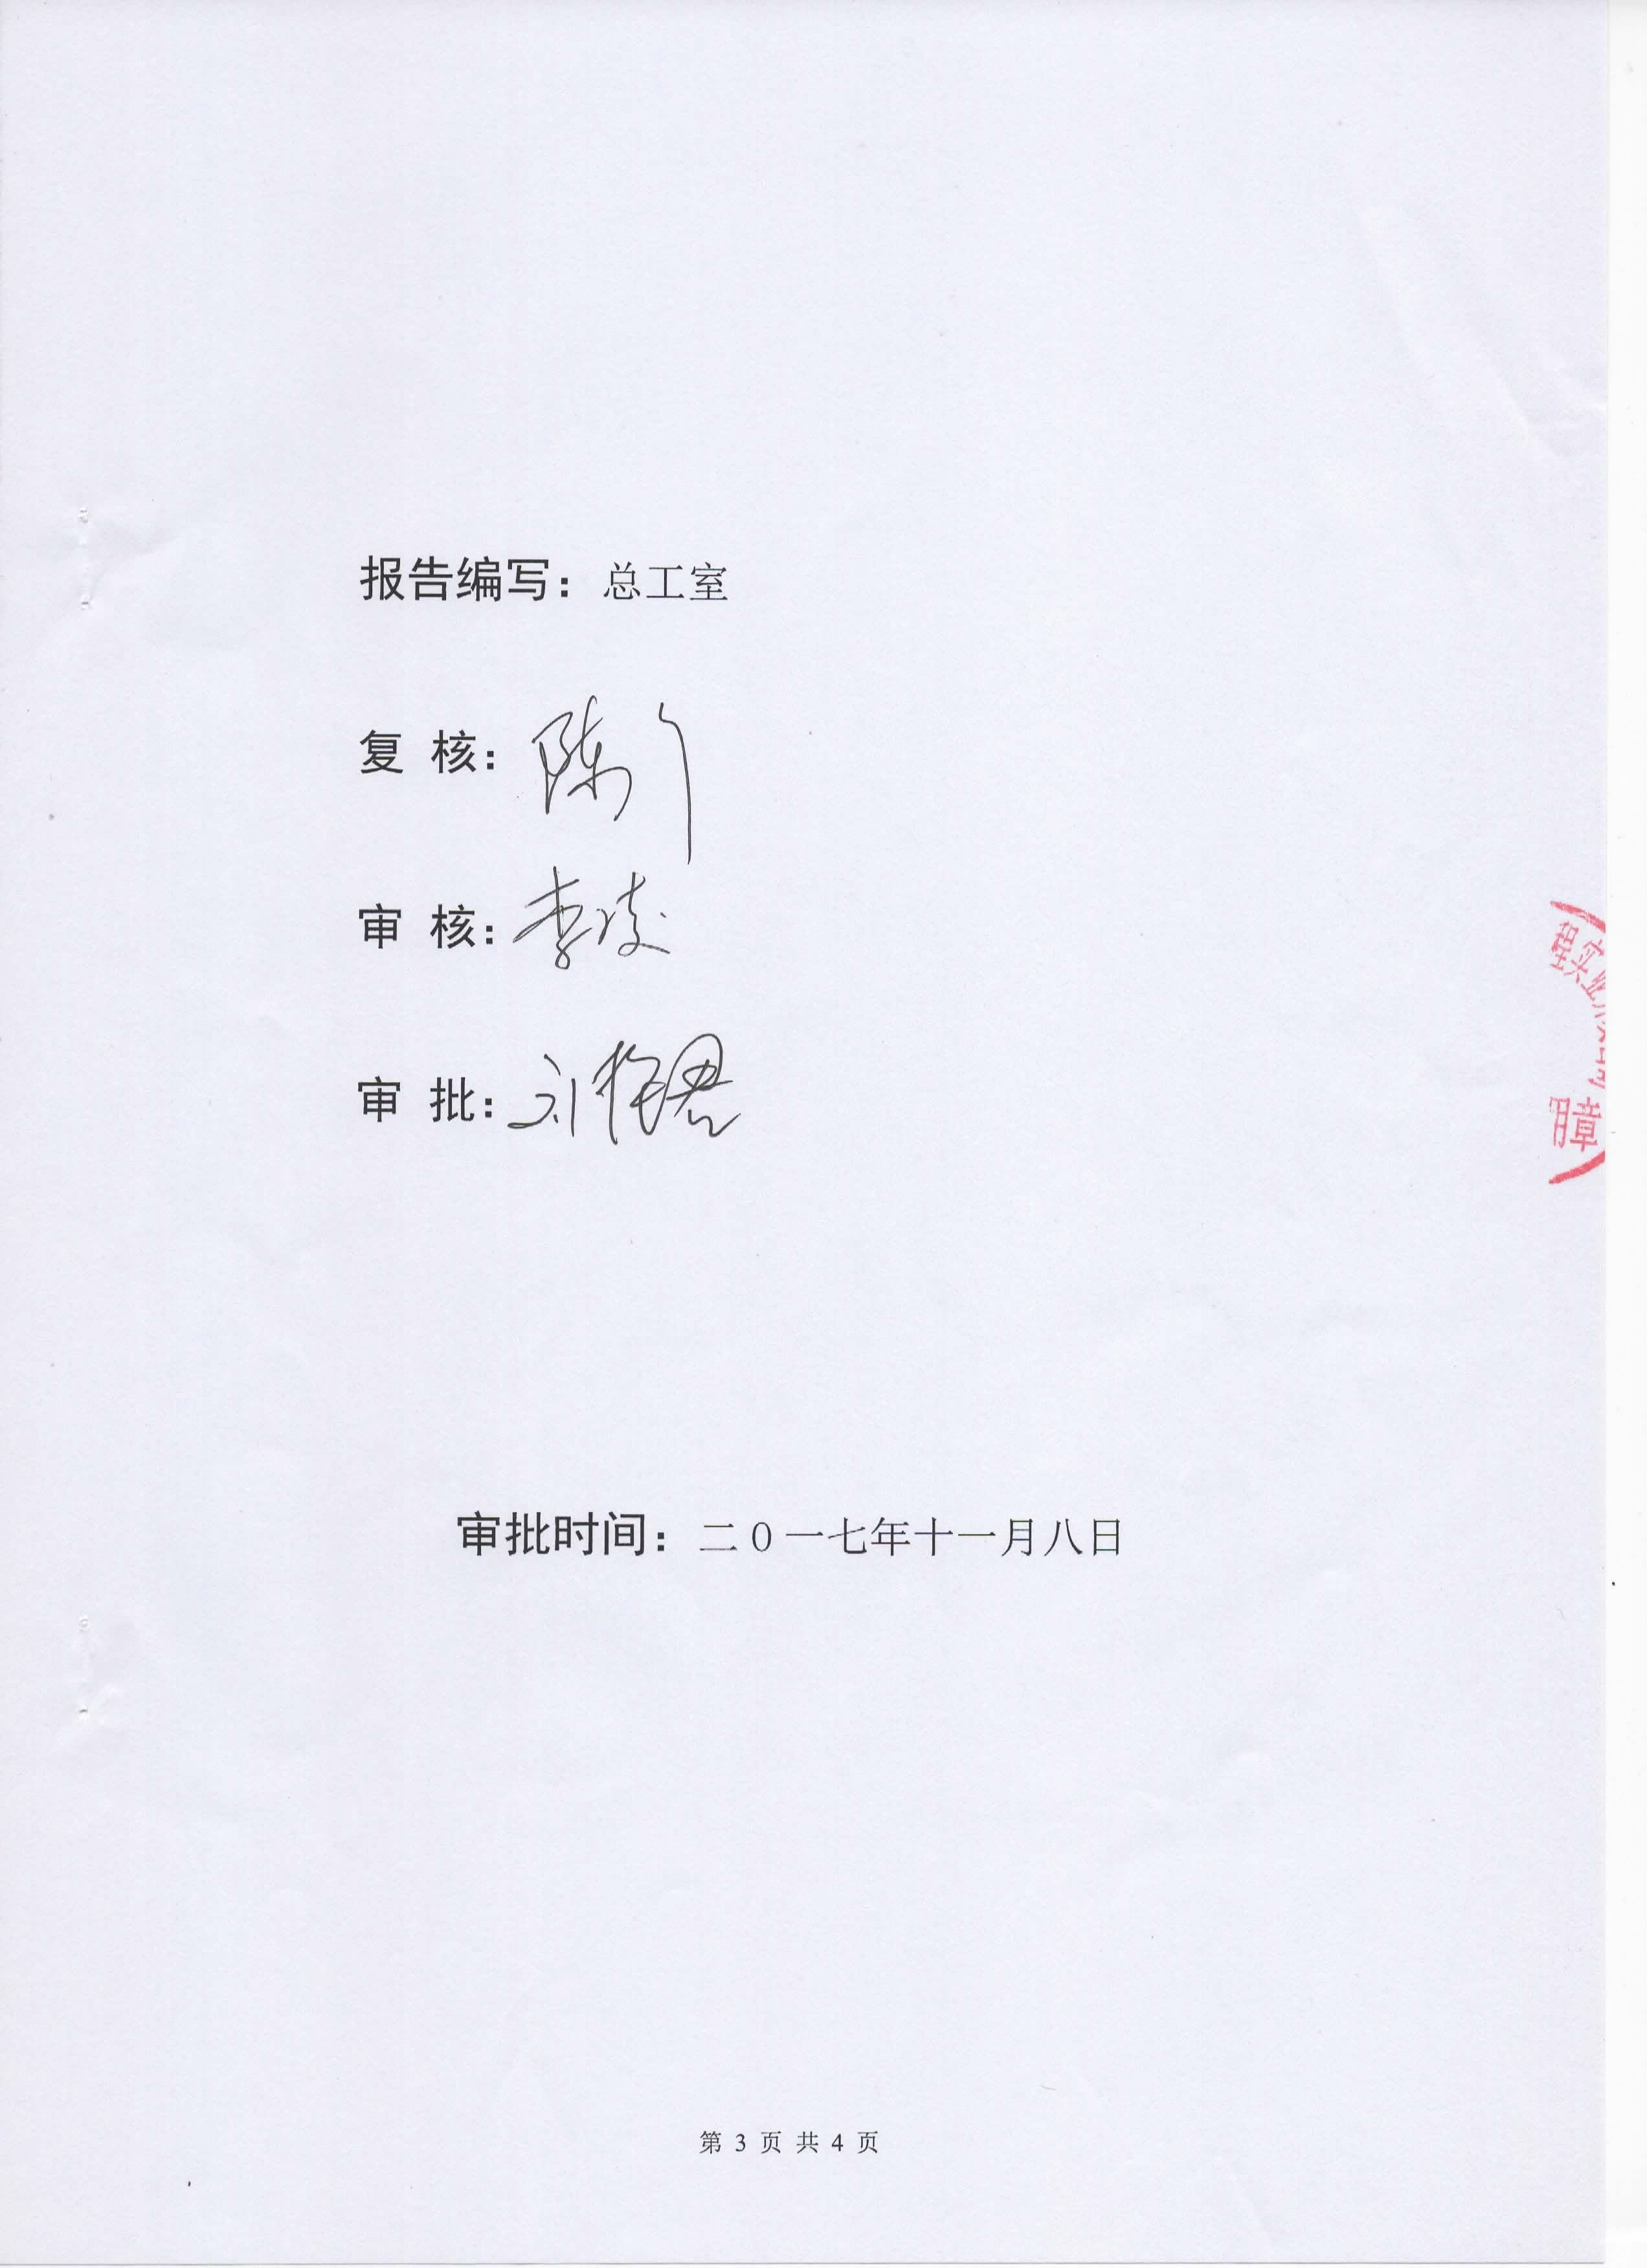 报告编写：总工室
复 核：陈
审 核：李凌
审 批：刘
实业
章
审批时间：二0一七年十一月八日
第 3 页 共 4 页